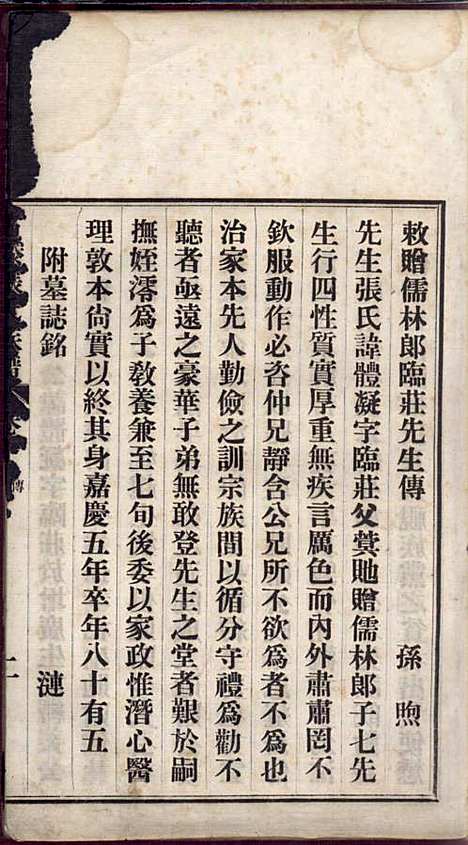 敕贈儒林郎臨莊先生傳 孫煦
先生張氏諱體凝字臨莊父蕡貤贈儒林郎子七先
生行四性質實厚重無疾言厲色而內外肅肅罔不
欽服動作必咨仲兄靜含公兄所不欲為者不為也
治家本先人勤儉之訓宗族間以循分守禮為勸不
聽者亟遠之豪華子弟無敢登先生之堂者艱於嗣
撫姪澪為子教養兼至七旬後委以家政惟潛心醫
理敦本尚實以終其身嘉慶五年卒年八十有五
附墓誌銘 漣
傳